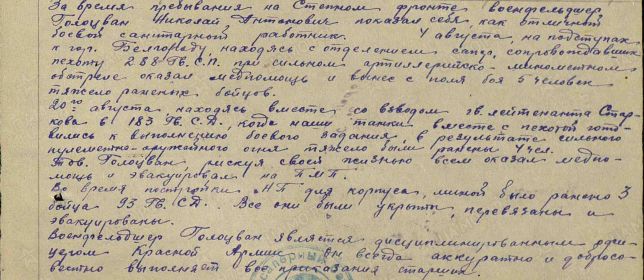 За время пребывания на Степном фронте военфельдшер
Голоцван Николай Антонович показал себя, как отличный
боевой санитарный работник. 4 августа, на подступах
к гор. Белгороду, находясь с отделением сапер, сопровождавших
пехоту 288 Гв. С.П. при сильном артиллерийско-минометном
обстреле оказал медпомощь и вынес с поля боя 5 человек
тяжело раненых бойцов.
20го августа находясь вместе со взводом гв. лейтенанта Стар-
кова в 183 Гв. С.Д., когда наши танки вместе с пехотой гото-
вились к выполнению боевого задания, в результате сильного
пулеметно-оружейного огня тяжело были ранены 4 чел.
Тов. Голоцван, рискуя своей жизнью всем оказал медпо-
мощь и эвакуировал на ПМП.
Во время постройки НП для корпуса, миной было ранено 3
бойца 93 Гв. С.Д. Все они были укрыты, перевязаны и
эвакуированы.
Военфельдшер Голоцван является дисциплинированным офи-
цером Красной Армии. Он всегда аккуратно и добросо-
вестно выполняет все приказания старших.